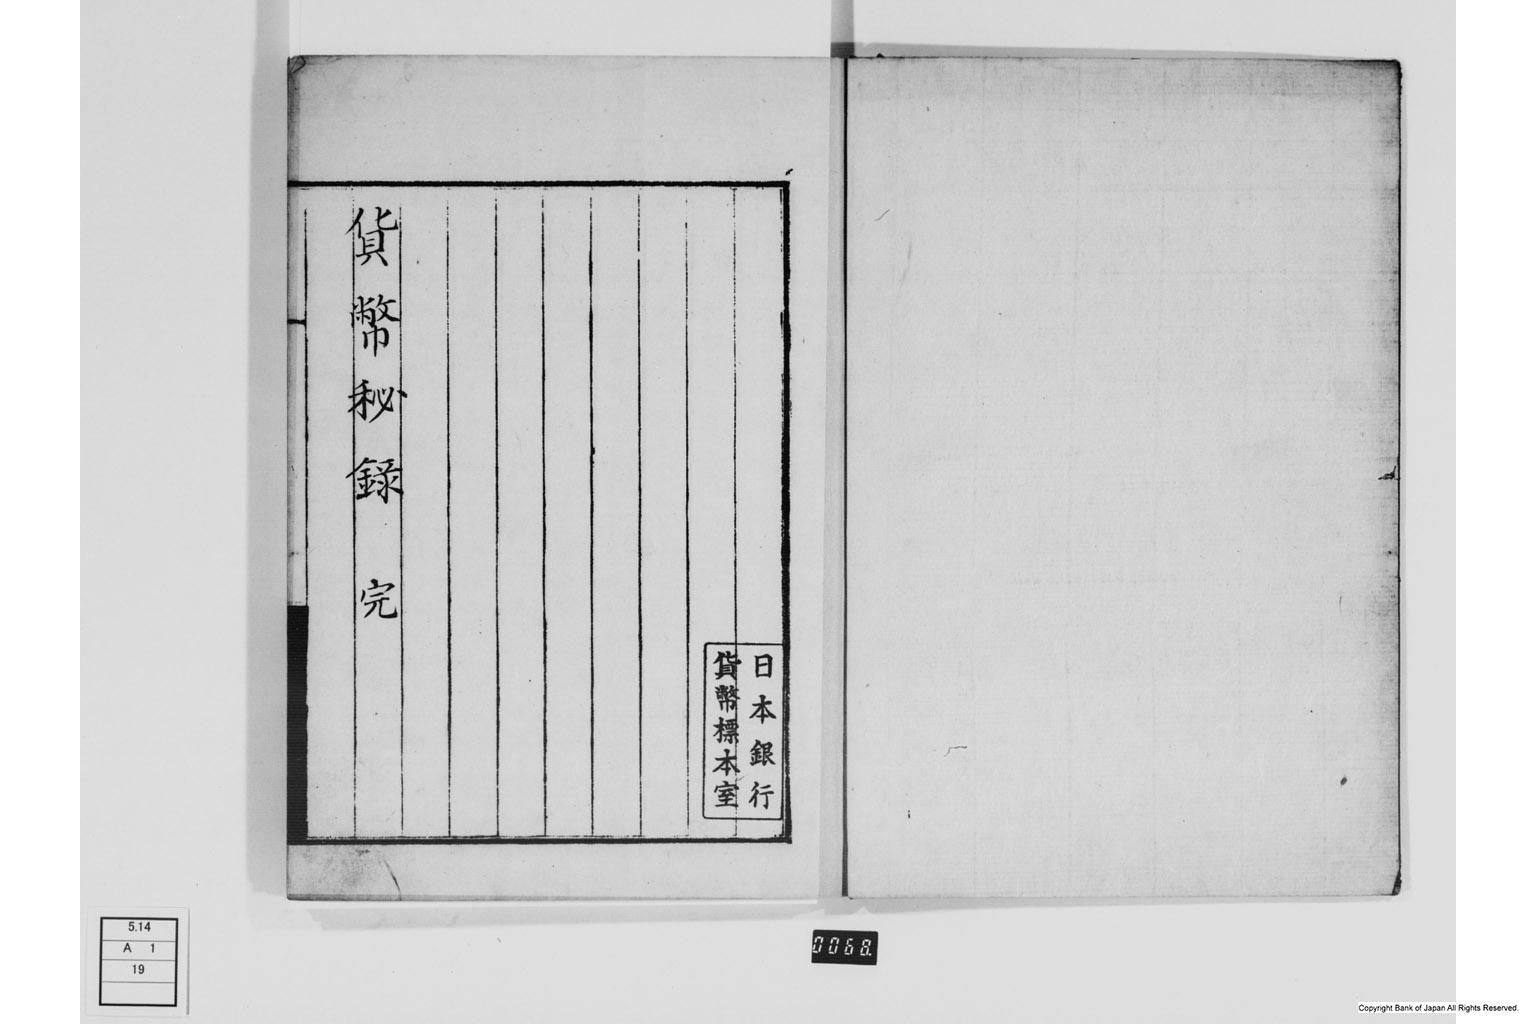 日本銀行
貨幣標本室
貨幣秘録 完
5.14
A 1
19
0068.
Copyright Bank of Japan All Rights Reserved.